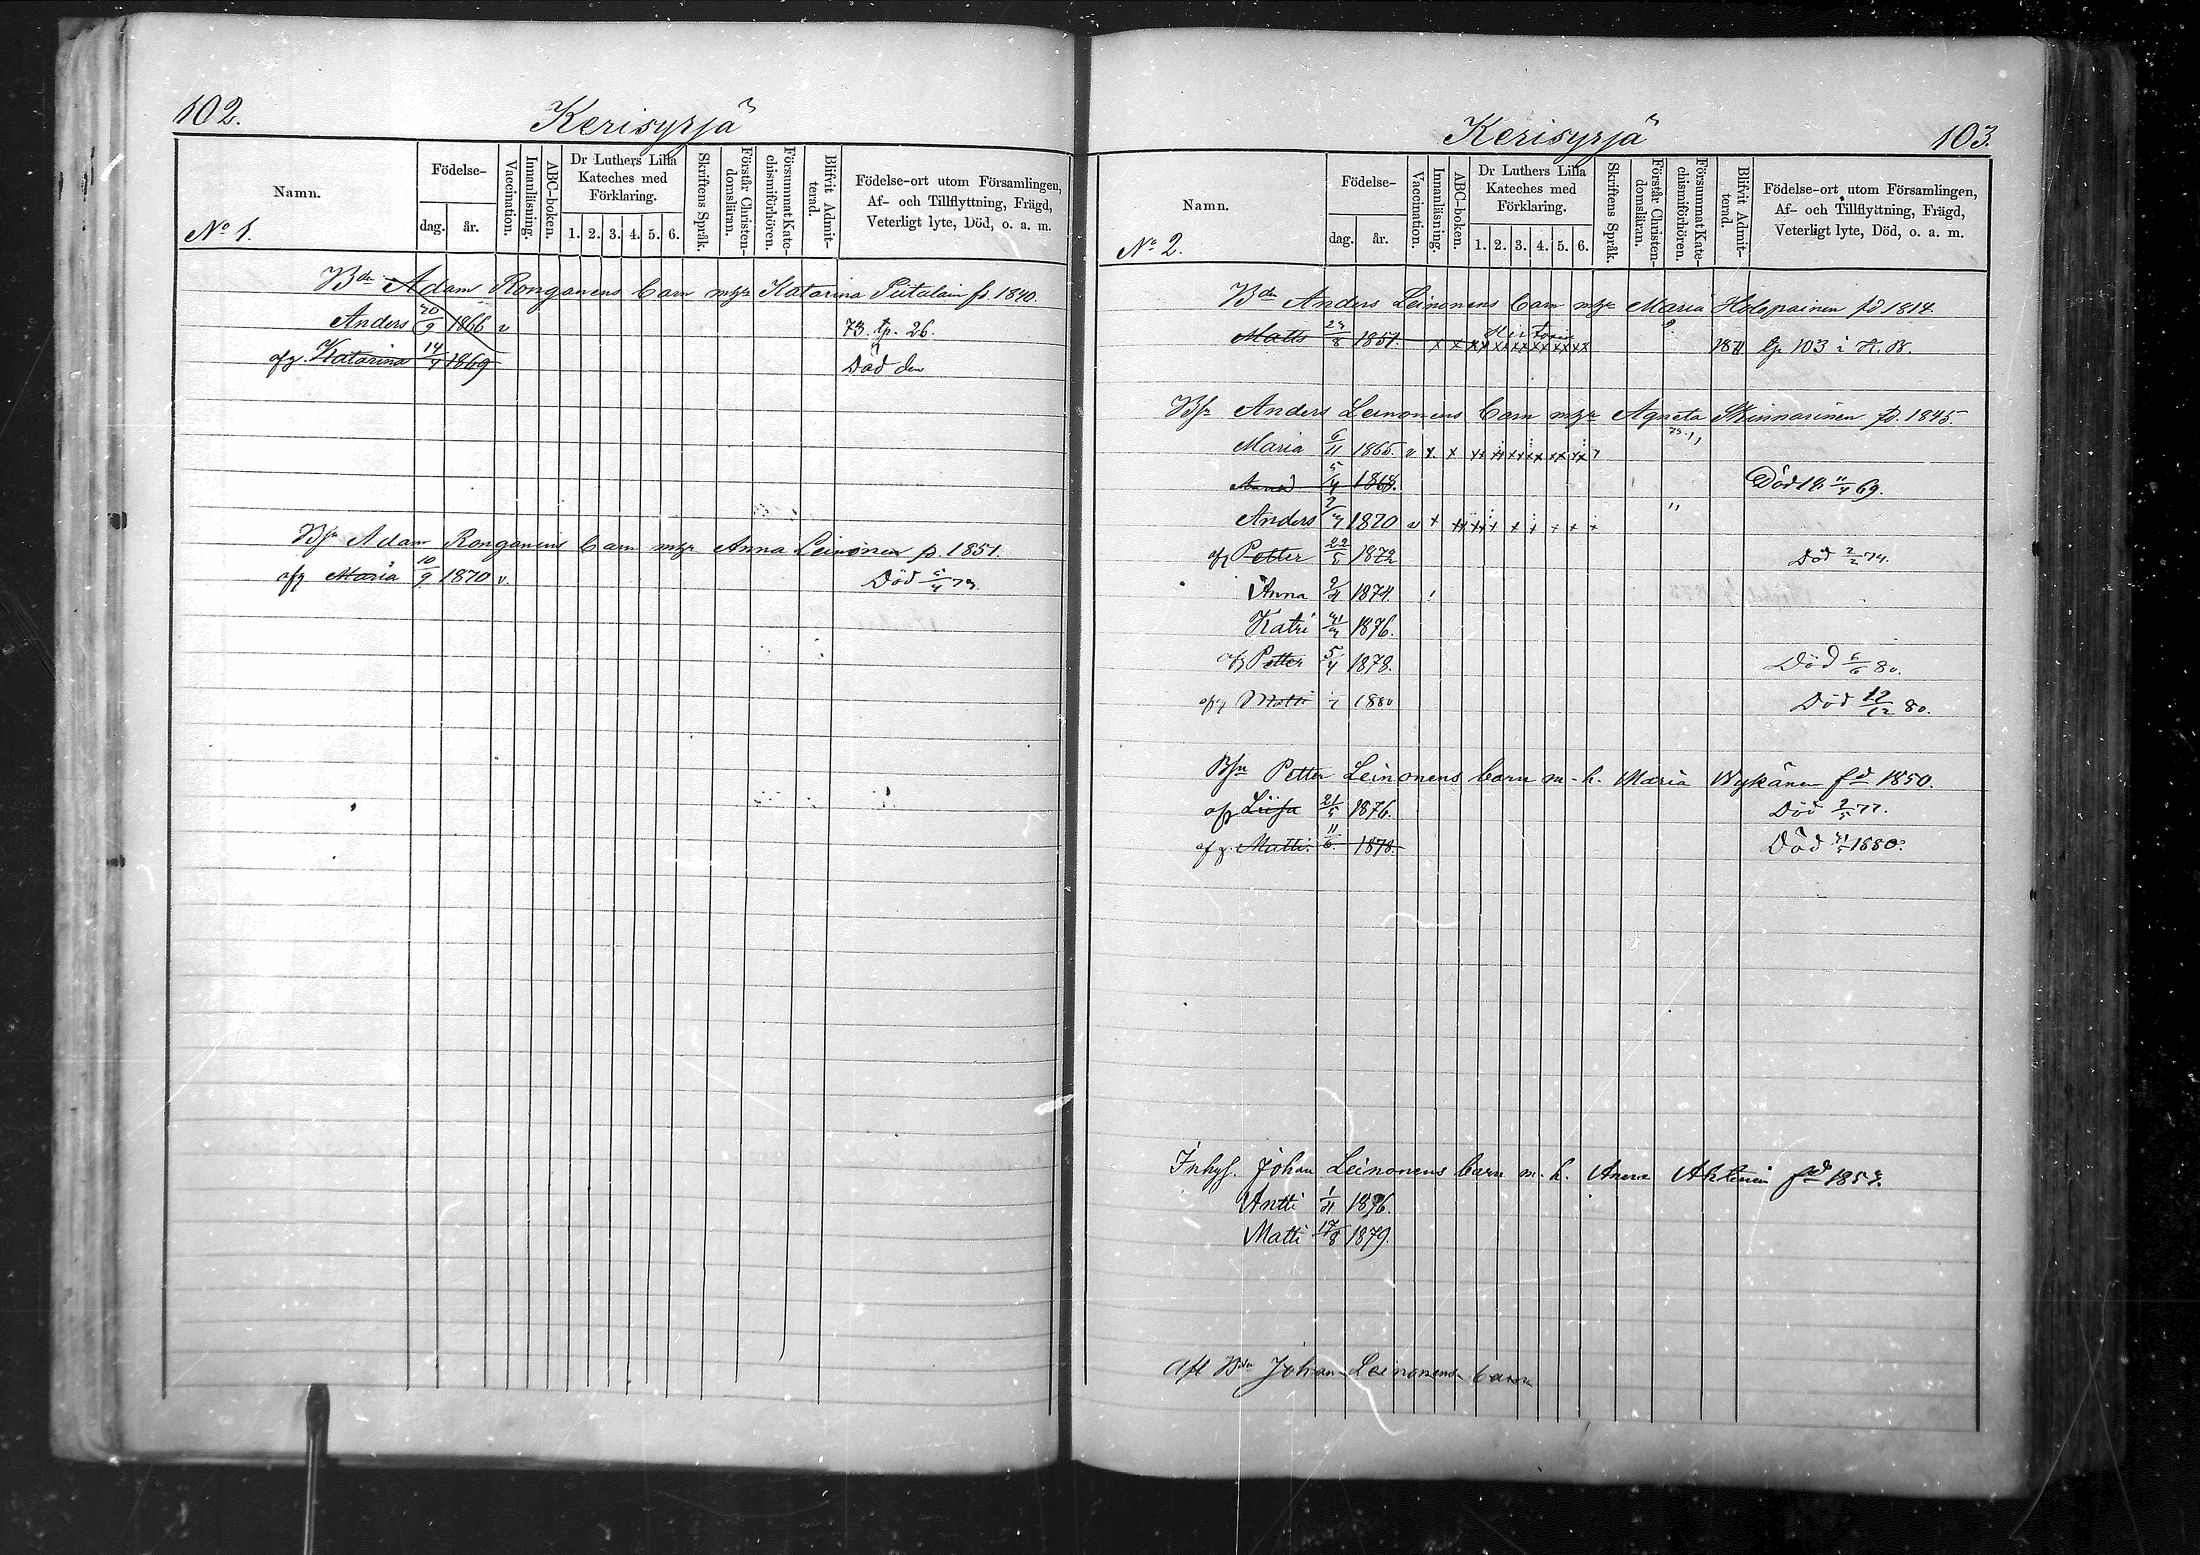 102.
Kerisyrjä
Namn.
Födelse-
dag. år.
Vaccination.
Innanläsning.
ABC-boken.
Dr Luthers Lilla Kateches med Förklaring.
1. 2. 3. 4. 5. 6.
Skriftens Språk.
Förstår Christendomsläran.
Försummat Katechismiförhören.
Blifvit Admitterad.
Födelse-ort utom Församlingen, Af- och Tillflyttning, Frägd, Veterligt lyte, Död, o. a. m.
No 1.
Bdn Adam Ronganens barn m hu Katarina Piitalain fd. 1840.
Anders 20/9 1866 v 73. tp. 26.
afg. Katarina 14/7 1869 Död den
Bsn Adam Ronganens barn m hu Anna Leinonen fd. 1851.
afg Maria 10/9 1870 v. Död 5/4 73.
Kerisyrjä
103.
Namn.
Födelse-
dag. år.
Vaccination.
Innanläsning.
ABC-boken.
Dr Luthers Lilla Kateches med Förklaring.
1. 2. 3. 4. 5. 6.
Skriftens Språk.
Förstår Christendomsläran.
Försummat Katechismiförhören.
Blifvit Admitterad.
Födelse-ort utom Församlingen, Af- och Tillflyttning, Frägd, Veterligt lyte, Död, o. a. m.
No 2.
Bdn Anders Leinonens barn m hu Maria Holopainen fd 1814.
Matts 1851. x x xx xx xx xx xx xx tp 103 i K. B.
Bsn Anders Leinonens barn m hu Agneta Kinnarinen fd. 1845.
Maria 6/11 1865. v x x xx xx xx xx xx xx
1868. Död 69.
Anders 1870 v x xx
afg Petter 22/5 1872 Död 2/2 74.
Anna 9/11 1874.
Katri 1876.
afg Petter 5/4 1878. Död 6/6 80.
afg Matti 1880 Död 12/12 80.
Bsn Petter Leinonens barn m. h. Maria Wykänen fd 1850.
afg Liisa 21/5 1876. Död 2/5 77.
afg. Matti 11/6. 1878. Död 1880.
Inhys. Johan Leinonens barn m. h. Anna fd
Antti 1/11 1876.
Matti 17/8 1879.
afl Bdn Johan Leinonens barn